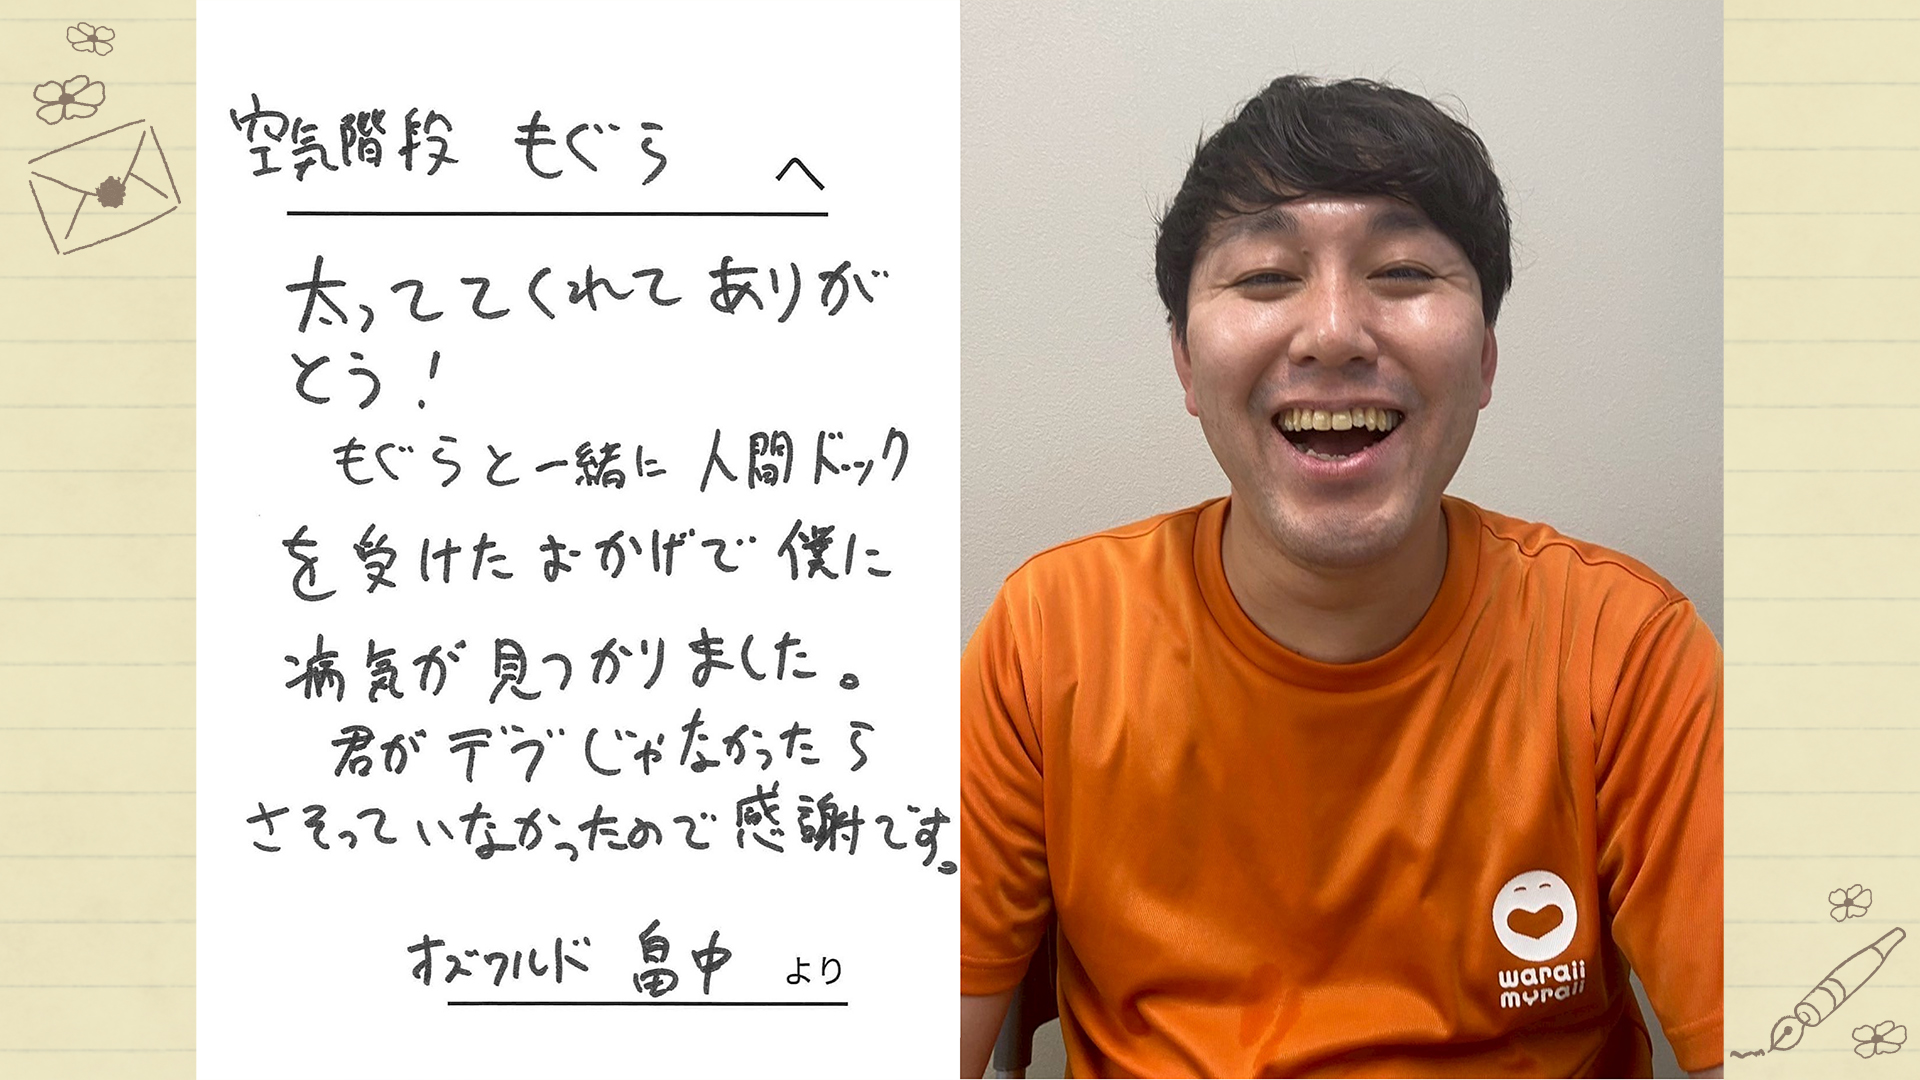 空気階段 もぐら へ
太っててくれてありが
とう!
もぐらと一緒に人間ドック
を受けたおかげで僕に
病気が見つかりました。
君がデブじゃなかったら
さそっていなかったので感謝です。
オズワルド 畠中 より
waraii
myraii